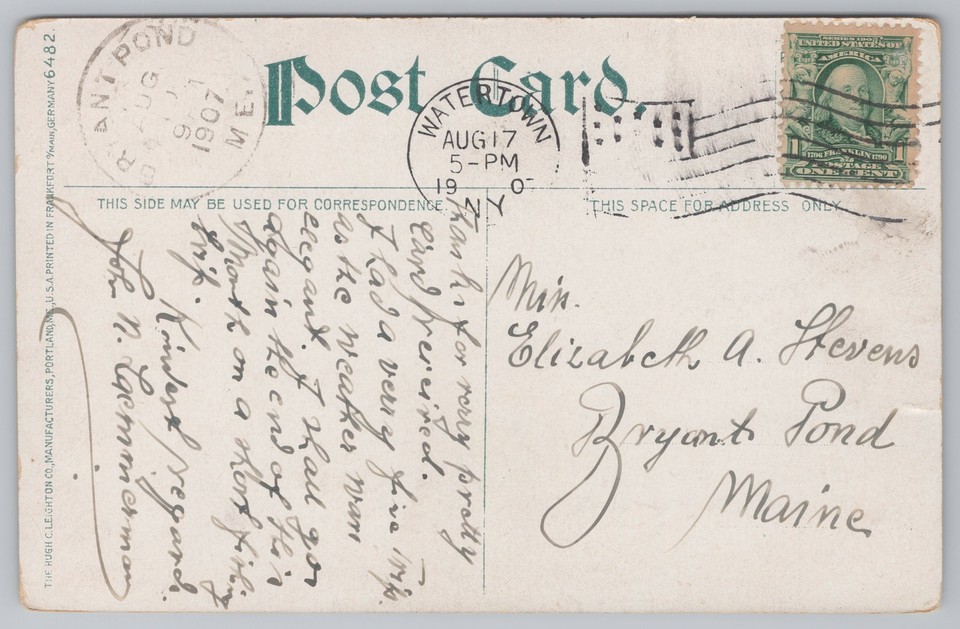 6482.
THE HUGH C. LEIGHTON CO., MANUFACTURERS, PORTLAND, ME., U.S.A. PRINTED IN FRANKFORT O/MAIN, GERMANY
BRYANT POND
AUG
1907
ME.
Post Card.
WATERTOWN
AUG 17
5-PM
190
NY
SERIES 1902
UNITED STATES OF
AMERICA
1 1706 FRANKLIN 1790 1
POSTAGE
ONE CENT
THIS SIDE MAY BE USED FOR CORRESPONDENCE
THIS SPACE FOR ADDRESS ONLY.
Thanks for very pretty
card received.
I had a very fine trip.
as the weather was
elegant. I shall go
again the end of this
Month on a short fishing
trip.
Kindest regards.
John N.
Miss.
Elizabeth A. Stevens
Bryant Pond
Maine